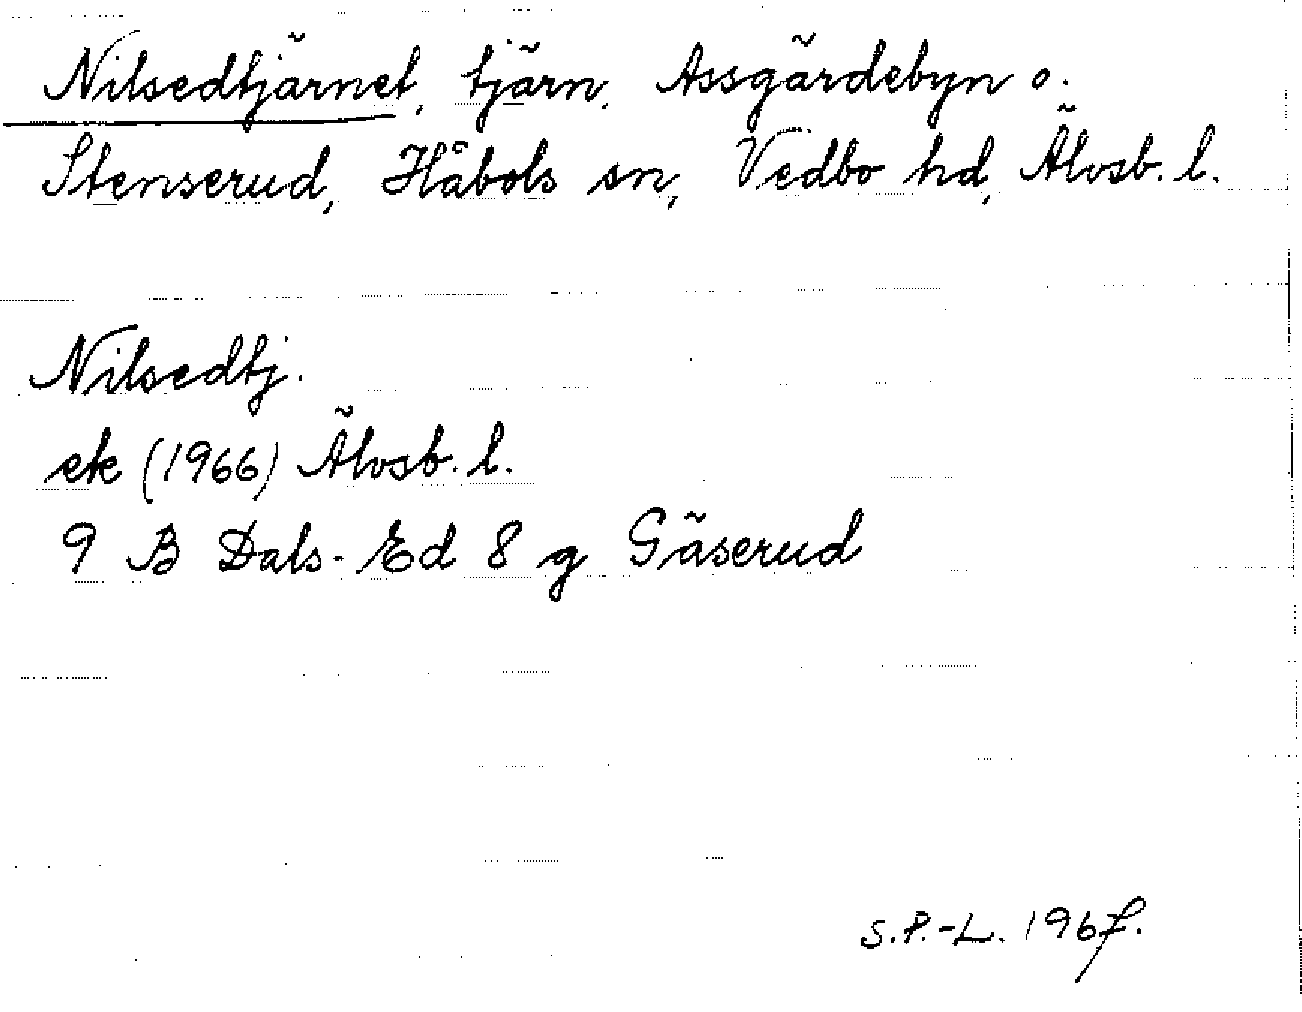 Nilsedtjärnet, tjärn, Assgärdebyn o.
Stenserud, Håbols sn, Vedbo hd, Älvsb. l.
Nilsedtj.
ek (1966) Älvsb. l.
9 B Dals-Ed 8 g Gäserud
S.P.-L. 1967.